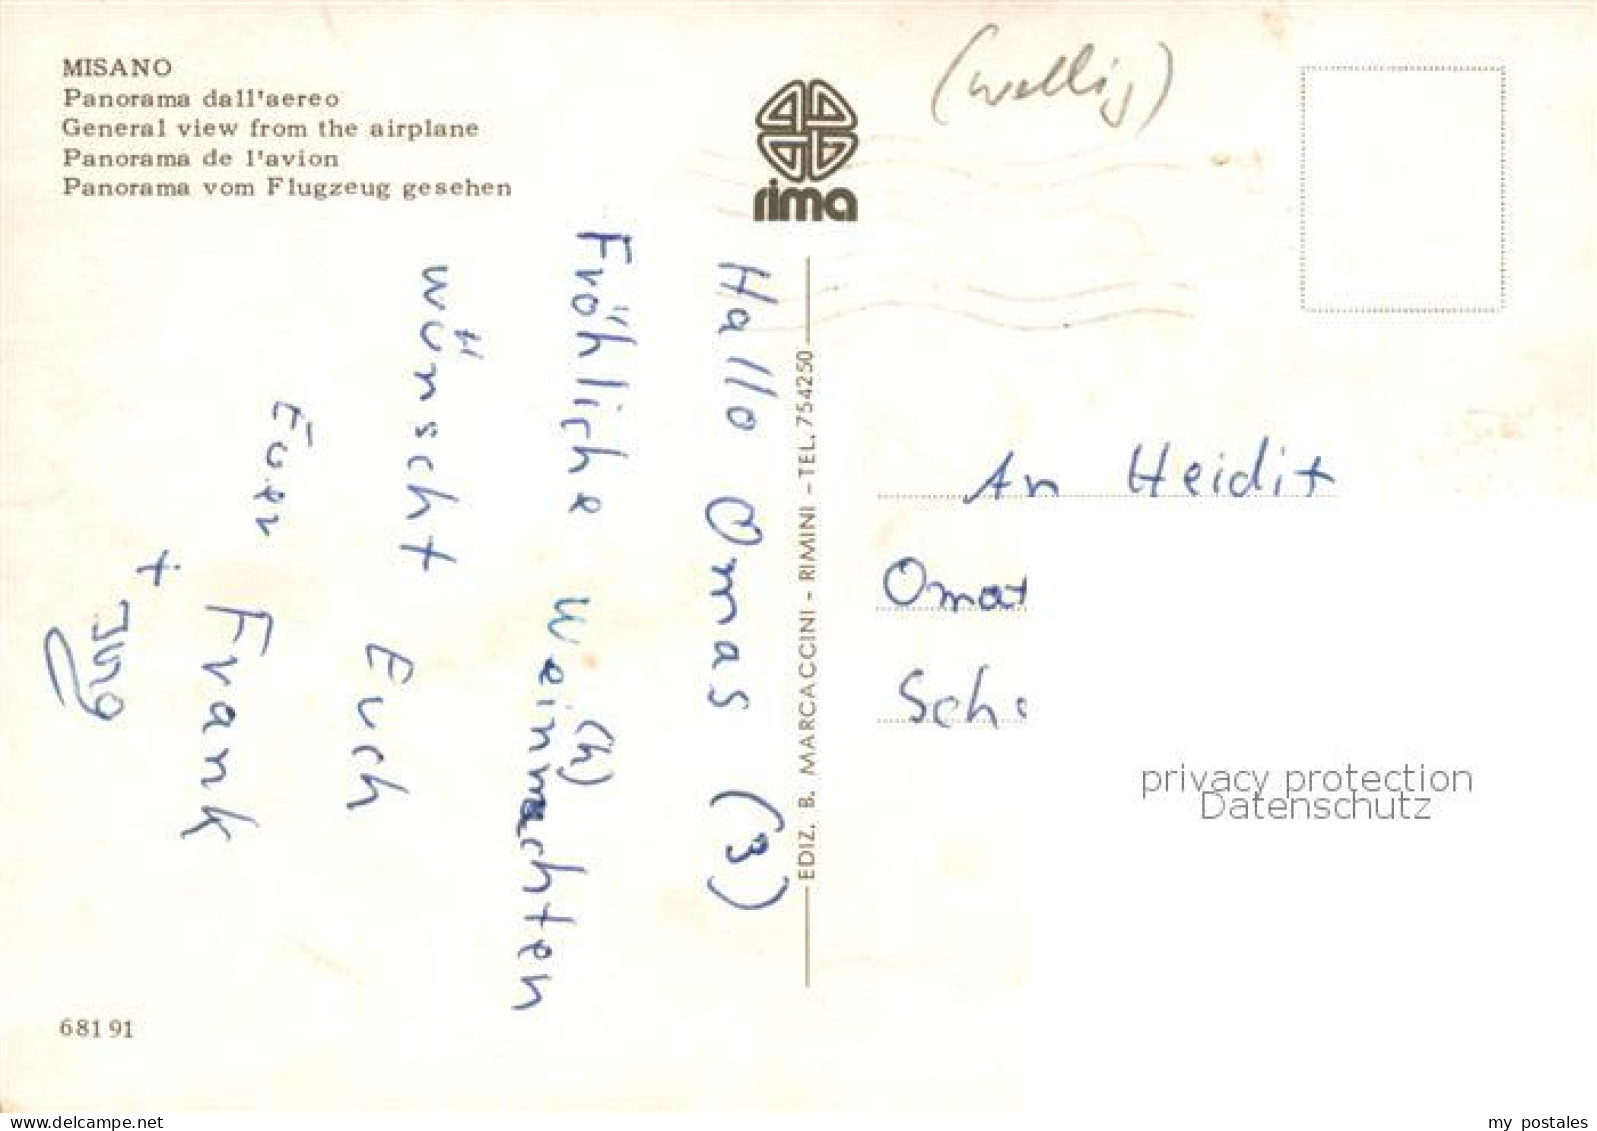 MISANO
Panorama dall'aereo
General view from the airplane
Panorama de l'avion
Panorama vom Flugzeug gesehen
rima
(wellig)
Hallo Omas (3)
Fröhliche Weinnachten
(h)
wünscht Euch
Euer Frank
+ Jürg
EDIZ. B. MARCACCINI - RIMINI - TEL. 754250
An Heidi+
Oma+
Sch
privacy protection
Datenschutz
681 91
www.delcampe.net
my_postales